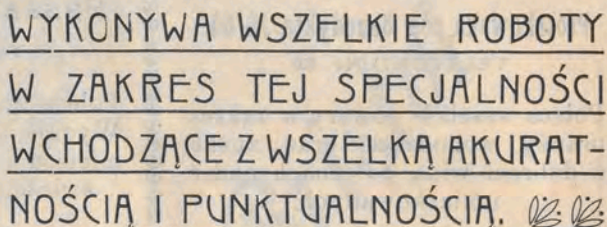 WYKONYWA WSZELKIE ROBOTY
W ZAKRES TEJ SPECJALNOŚCI
WCHODZĄCE Z WSZELKĄ AKURAT-
NOŚCIĄ I PUNKTUALNOŚCIĄ.